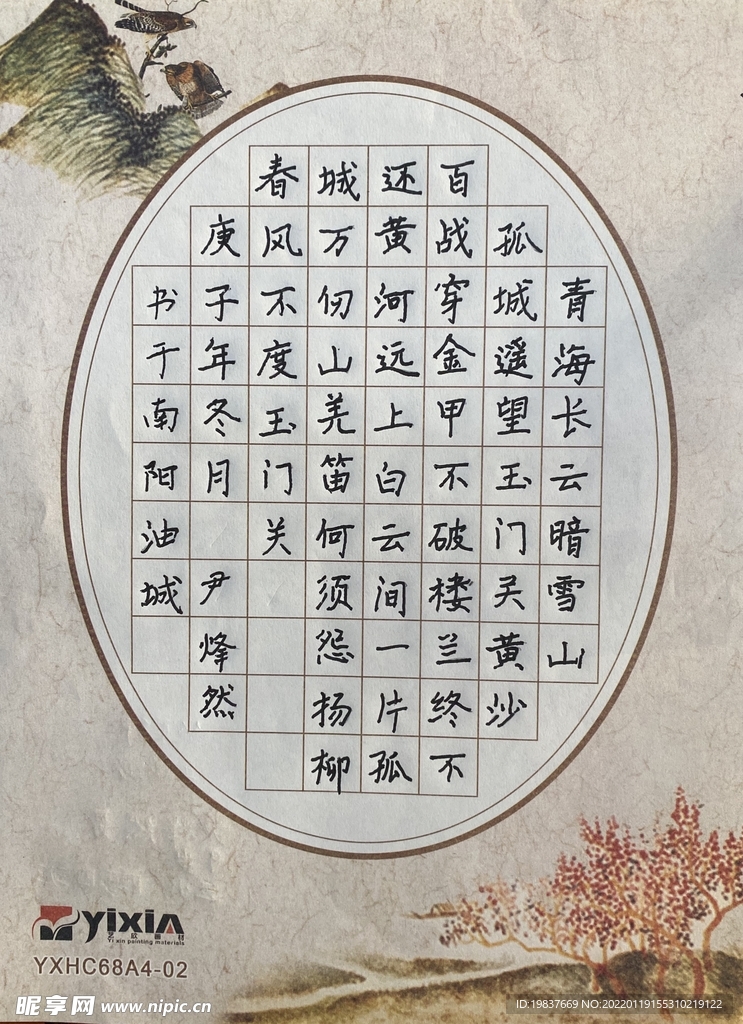 青海长云暗雪山
孤城遥望玉门关黄沙
百战穿金甲不破楼兰终不
还黄河远上白云间一片孤
城万仞山羌笛何须怨扬柳
春风不度玉门关
庚子年冬月 尹烽然
书于南阳油城
yixin
艺欣画材
Yi xin painting materials
YXHC68A4-02
昵享网 www.nipic.cn
ID:19837669 NO:20220119155310219122